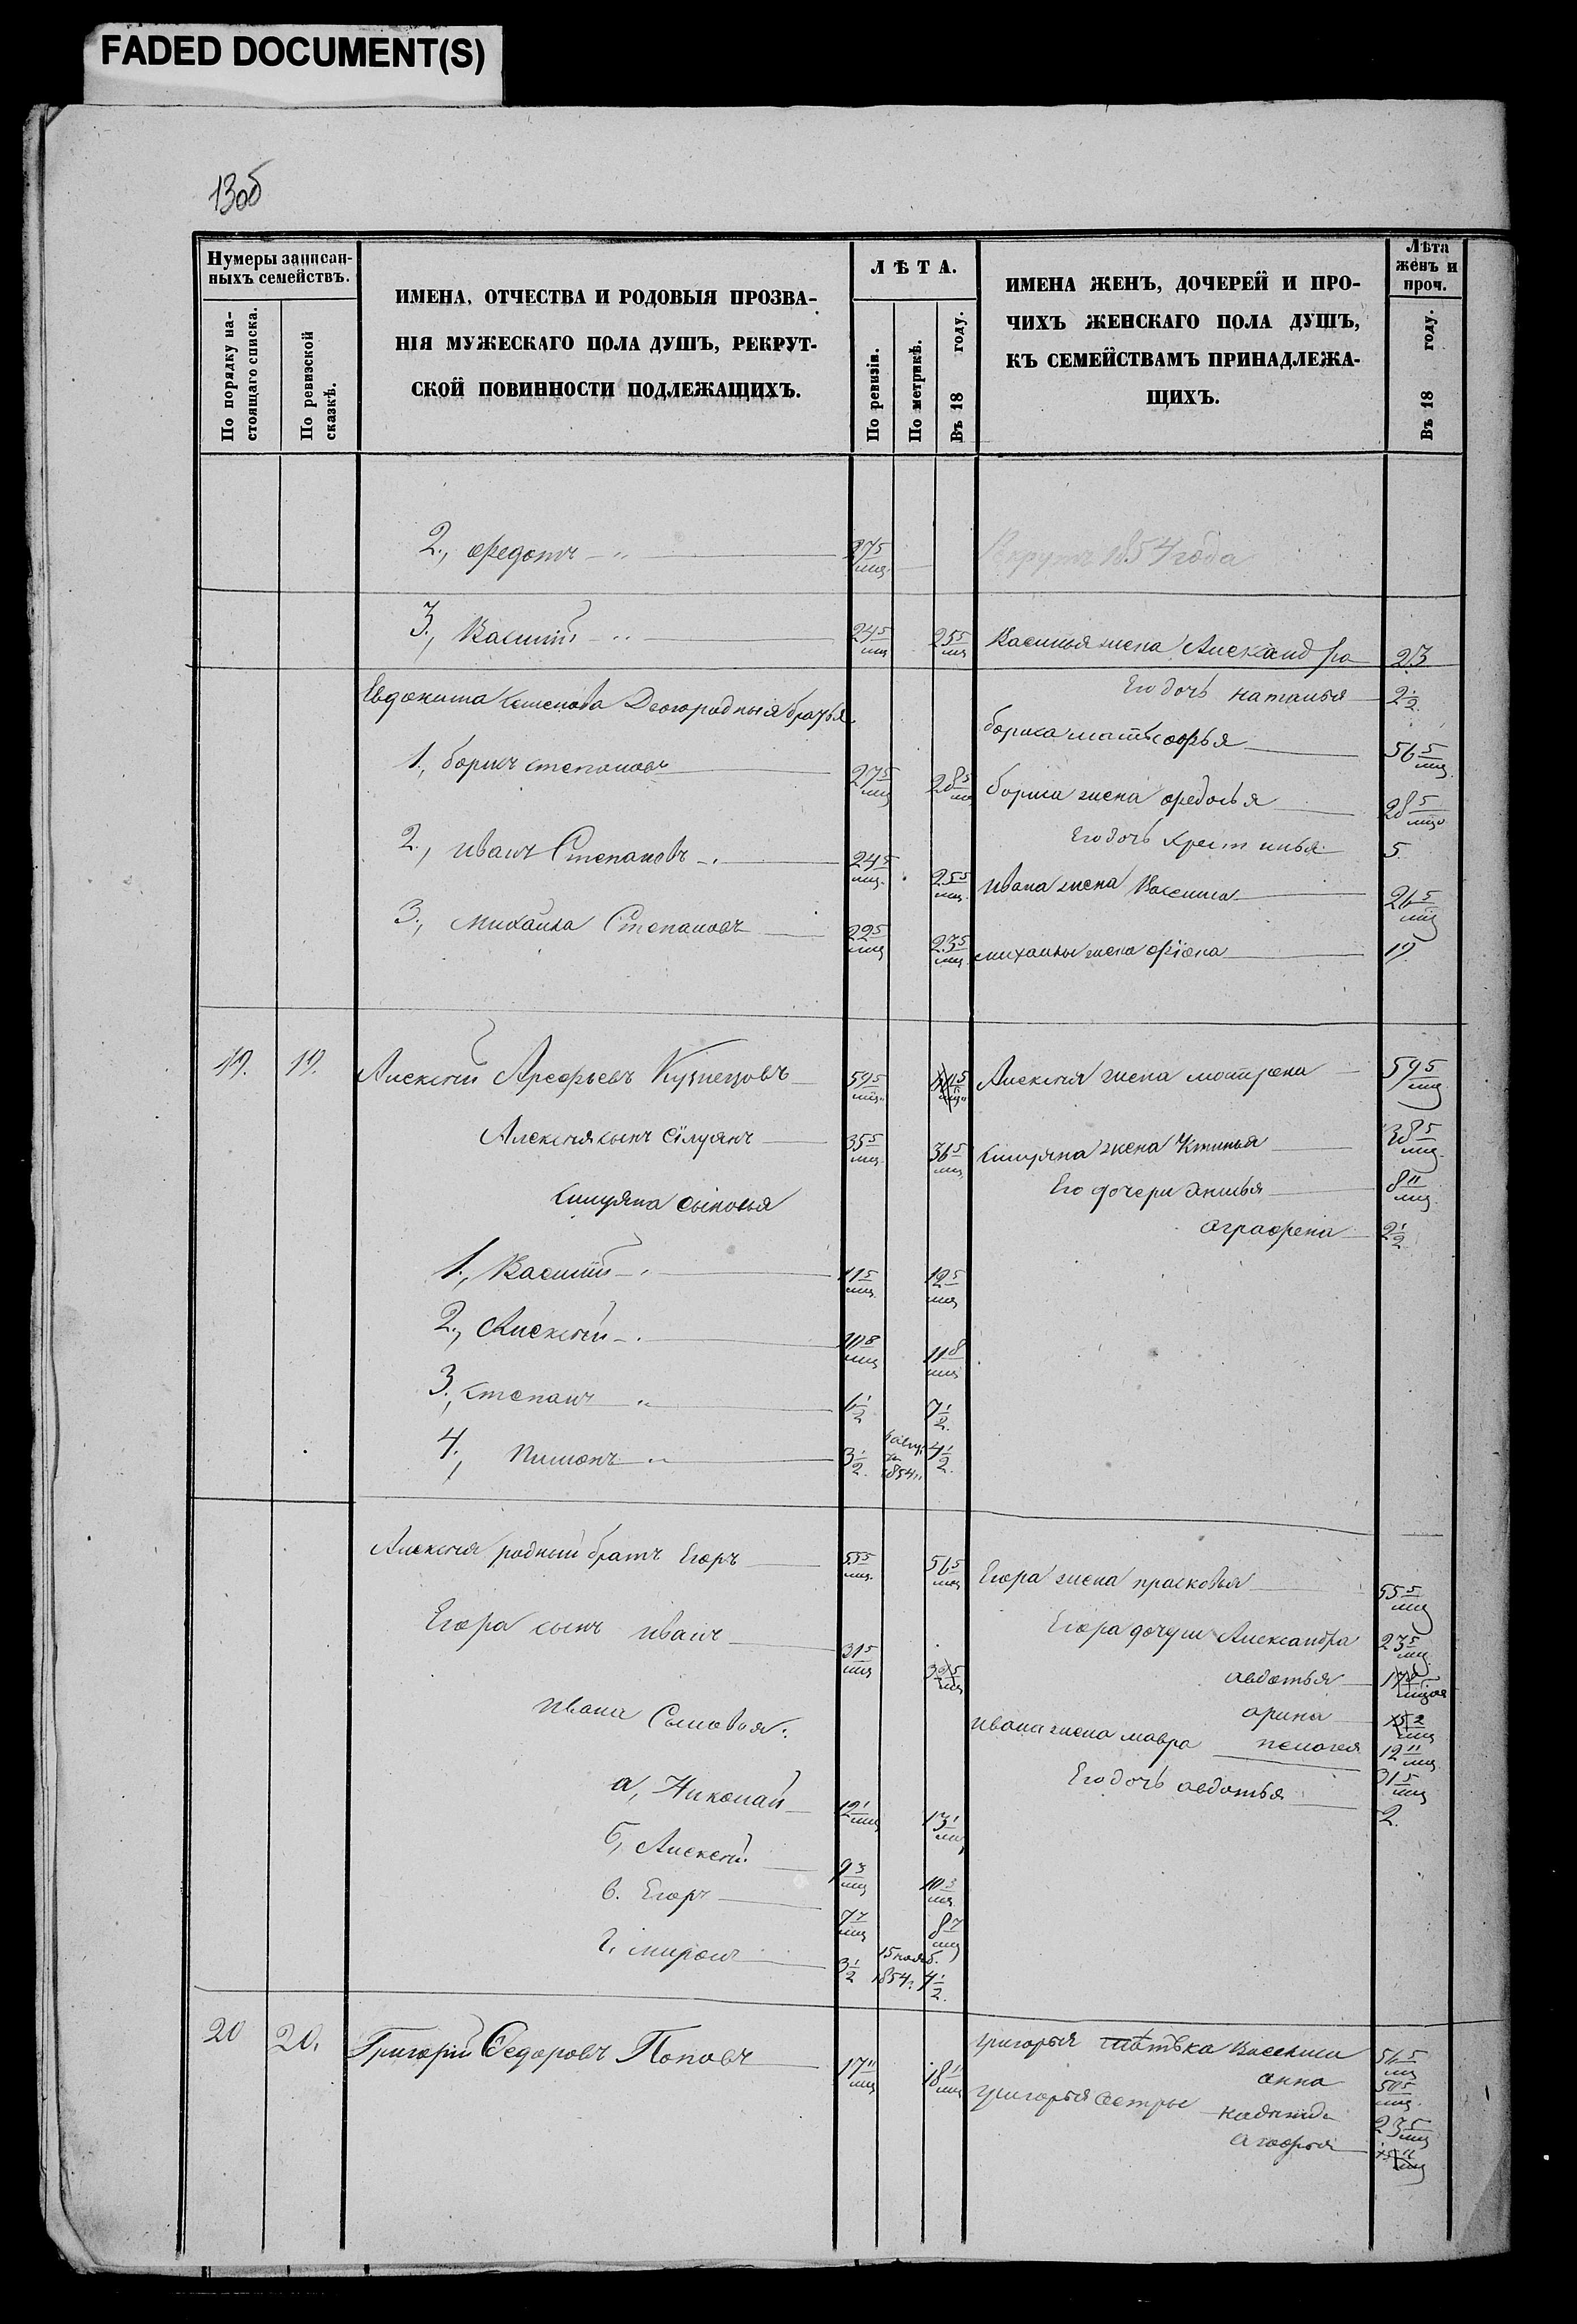 FADED DOCUMENT(S)
13об
Нумеры записан-
ныхъ семействъ.
По порядку на-
стоящаго списка.
По ревизской
сказкѣ.
ИМЕНА, ОТЧЕСТВА И РОДОВЫЯ ПРОЗВА-
НІЯ МУЖЕСКАГО ПОЛА ДУШЪ, РЕКРУТ-
СКОЙ ПОВИННОСТИ ПОДЛЕЖАЩИХЪ.
ЛѢТА.
По ревизіи.
По метрикѣ.
Въ 18 году.
ИМЕНА ЖЕНЪ, ДОЧЕРЕЙ И ПРО-
ЧИХЪ ЖЕНСКАГО ПОЛА ДУШЪ,
КЪ СЕМЕЙСТВАМЪ ПРИНАДЛЕЖА-
ЩИХЪ.
Лѣта
женъ и
проч.
Въ 18 году.
2., Федотъ 27 5/мц Рекрутъ 1854 года
3., Василій 24 5/мц 25 5/мц Василья жена Александра 23
Евдокима Семенова Двоюродныя братья
Его дочь наталья 2 1/2
бориса мать софья 56 5/мц
1., борисъ степановъ 27 5/мц 28 5/мц бориса жена федосья 28 5/мц
Его дочь Крестинья 5
2., иванъ Степановъ 24 5/мц 25 5/мц ивана жена Василиса 26 5/мц
3., михайла Степановъ 22 5/мц 23 5/мц михаилы жена фіона 19
19. 19. Алексѣй Арефьевъ Кузнецовъ 59 5/мц Алексѣя жена матрена 59 5/мц
Алексѣя сынъ сілуянъ 35 5/мц 36 5/мц силуяна жена Устинья 38 5/мц
силуяна сыновья
Его дочери 8 11/мц
аграфена 2 1/2
1., Василій 11 5/мц 12 5/мц
2., Алексѣй 10 8/мц 11 8/мц
3., степанъ 6 1/2 7 1/2
4., Пимонъ 3 1/2 1854 4 1/2
Алексѣя родный братъ Егоръ 55 5/мц 56 5/мц Егора жена прасковья 55 5/мц
Егора сынъ иванъ 31 5/мц 32 5/мц
Егора дочери Александра 23 5/мц
авдотья 17
арина 15 2/мц
пелогея 12 11/мц
Ивана Сыновья:
ивана жена мавра 31 5/мц
Его дочь авдотья 2
а, Николай 12 1/мц 13 1/мц
б, Алексѣй 9 3/мц 10 3/мц
в. Егоръ 7 7/мц 8 7/мц
г, миронъ 3 1/2 15 нояб. 1854 4 1/2
20 20. Григорій Федоровъ Поповъ 17 11/мц 18 11/мц
григорья Василиса 56 5/мц
анна 50 5/мц
григорья сестры надежда 23 5/мц